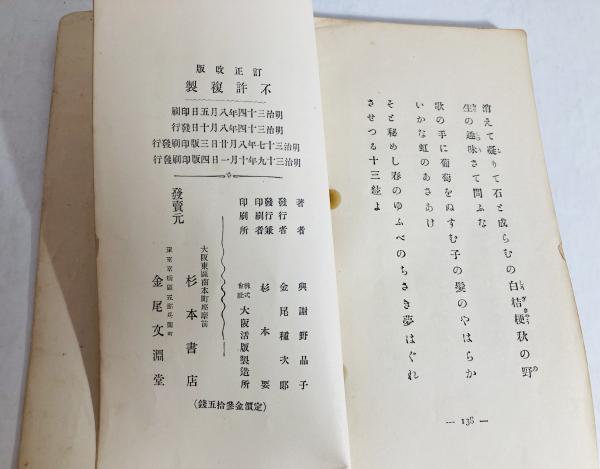 消えて凝りて石と成らむの白桔梗秋の野
生の趣味さて問ふな
歌の手に葡萄をぬすむ子の髮のやはらか
いかな虹のあさあけ
そと秘めし春のゆふべのちさき夢はぐれ
させつる十三絃よ
— 138 —
訂正改版
不許複製
明治三十四年八月五日印刷
明治三十四年八月十日發行
明治三十七年八月廿日三版印刷發行
明治三十九年十月一日四版印刷發行
著者 與謝野晶子
發行者 金尾種次郎
發行兼印刷者 杉本要
印刷所 株式會社 大阪活版製造所
發賣元
大阪東區南本町座摩前
杉本書店
東京京橋區五郎兵衛町
金尾文淵堂
(定價金參拾五錢)